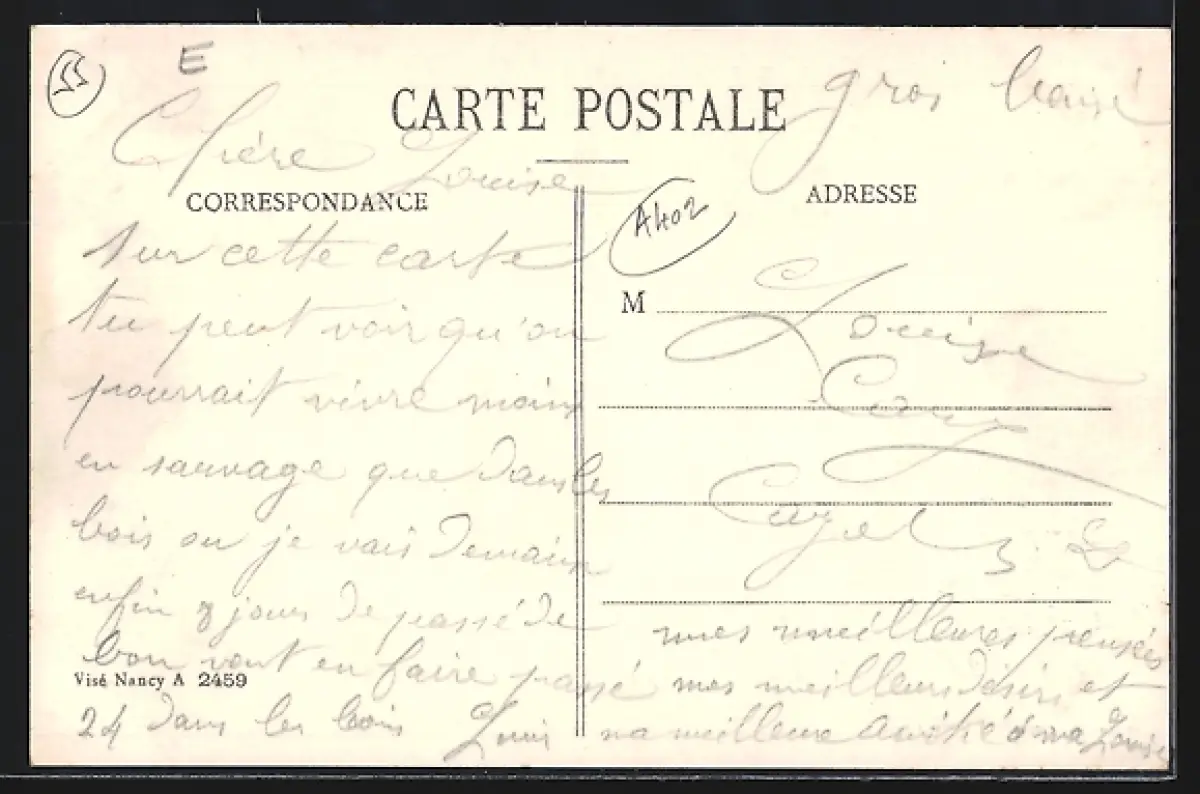 55
E
CARTE POSTALE
gros baisé
Chère Louise
CORRESPONDANCE
sur cette carte
tu peut voir qu'on
pourrait vivre moins
en sauvage que dans les
bois ou je vais demain
enfin 8 jours de passé de
bon vont en faire passé
Visé Nancy A 2459
24 dans les bois Louis
A402
ADRESSE
M
Louise
mes meilleures pensées
mes meilleurs désirs et
ma meilleure amitié à ma Louise